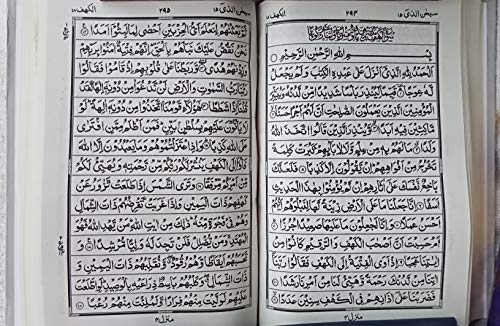 سبحن الذی ١٥
٢٩٤
الکهف ١٨
بِسْمِ اللّٰهِ الرَّحْمٰنِ الرَّحِيْمِ
اَلْحَمْدُ لِلّٰهِ الَّذِيْٓ اَنْزَلَ عَلٰى عَبْدِهِ الْكِتٰبَ وَلَمْ يَجْعَلْ
لَّهٗ عِوَجًا ۝ قَيِّمًا لِّيُنْذِرَ بَاْسًا شَدِيْدًا مِّنْ لَّدُنْهُ وَيُبَشِّرَ
الْمُؤْمِنِيْنَ الَّذِيْنَ يَعْمَلُوْنَ الصّٰلِحٰتِ اَنَّ لَهُمْ اَجْرًا حَسَنًا ۝
مَّاكِثِيْنَ فِيْهِ اَبَدًا ۝ وَّيُنْذِرَ الَّذِيْنَ قَالُوا اتَّخَذَ اللّٰهُ
وَلَدًا ۝ مَا لَهُمْ بِهٖ مِنْ عِلْمٍ وَّلَا لِاٰبَآئِهِمْ كَبُرَتْ كَلِمَةً
تَخْرُجُ مِنْ اَفْوَاهِهِمْ اِنْ يَّقُوْلُوْنَ اِلَّا كَذِبًا ۝ فَلَعَلَّكَ
بَاخِعٌ نَّفْسَكَ عَلٰٓى اٰثَارِهِمْ اِنْ لَّمْ يُؤْمِنُوْا بِهٰذَا الْحَدِيْثِ
اَسَفًا ۝ اِنَّا جَعَلْنَا مَا عَلَى الْاَرْضِ زِيْنَةً لَّهَا لِنَبْلُوَهُمْ اَيُّهُمْ
اَحْسَنُ عَمَلًا ۝ وَاِنَّا لَجٰعِلُوْنَ مَا عَلَيْهَا صَعِيْدًا جُرُزًا ۝
اَمْ حَسِبْتَ اَنَّ اَصْحٰبَ الْكَهْفِ وَالرَّقِيْمِ كَانُوْا مِنْ
اٰيٰتِنَا عَجَبًا ۝ اِذْ اَوَى الْفِتْيَةُ اِلَى الْكَهْفِ فَقَالُوْا رَبَّنَآ
اٰتِنَا مِنْ لَّدُنْكَ رَحْمَةً وَّهَيِّئْ لَنَا مِنْ اَمْرِنَا رَشَدًا ۝
فَضَرَبْنَا عَلٰٓى اٰذَانِهِمْ فِي الْكَهْفِ سِنِيْنَ عَدَدًا ۝ ثُمَّ
منزل ٤
سبحن الذی ١٥
٢٩٥
الکهف ١٨
بَعَثْنٰهُمْ لِنَعْلَمَ اَيُّ الْحِزْبَيْنِ اَحْصٰى لِمَا لَبِثُوْٓا اَمَدًا ۝
نَحْنُ نَقُصُّ عَلَيْكَ نَبَاَهُمْ بِالْحَقِّ اِنَّهُمْ فِتْيَةٌ اٰمَنُوْا
بِرَبِّهِمْ وَزِدْنٰهُمْ هُدًى ۝ وَّرَبَطْنَا عَلٰى قُلُوْبِهِمْ اِذْ قَامُوْا فَقَالُوْا
رَبُّنَا رَبُّ السَّمٰوٰتِ وَالْاَرْضِ لَنْ نَّدْعُوَا۟ مِنْ دُوْنِهٖٓ اِلٰهًا لَّقَدْ
قُلْنَآ اِذًا شَطَطًا ۝ هٰٓؤُلَآءِ قَوْمُنَا اتَّخَذُوْا مِنْ دُوْنِهٖٓ اٰلِهَةً لَوْ
لَا يَاْتُوْنَ عَلَيْهِمْ بِسُلْطٰنٍۭ بَيِّنٍ فَمَنْ اَظْلَمُ مِمَّنِ افْتَرٰى
عَلَى اللّٰهِ كَذِبًا ۝ وَاِذِ اعْتَزَلْتُمُوْهُمْ وَمَا يَعْبُدُوْنَ اِلَّا اللّٰهَ
فَاْوٗٓا اِلَى الْكَهْفِ يَنْشُرْ لَكُمْ رَبُّكُمْ مِّنْ رَّحْمَتِهٖ وَيُهَيِّئْ لَكُمْ
مِّنْ اَمْرِكُمْ مِّرْفَقًا ۝ وَتَرَى الشَّمْسَ اِذَا طَلَعَتْ تَّزٰوَرُ عَنْ
كَهْفِهِمْ ذَاتَ الْيَمِيْنِ وَاِذَا غَرَبَتْ تَّقْرِضُهُمْ ذَاتَ الشِّمَالِ
وَهُمْ فِيْ فَجْوَةٍ مِّنْهُ ذٰلِكَ مِنْ اٰيٰتِ اللّٰهِ مَنْ يَّهْدِ اللّٰهُ فَهُوَ
الْمُهْتَدِ وَمَنْ يُّضْلِلْ فَلَنْ تَجِدَ لَهٗ وَلِيًّا مُّرْشِدًا ۝
وَتَحْسَبُهُمْ اَيْقَاظًا وَّهُمْ رُقُوْدٌ وَّنُقَلِّبُهُمْ ذَاتَ الْيَمِيْنِ وَ
ذَاتَ الشِّمَالِ وَكَلْبُهُمْ بَاسِطٌ ذِرَاعَيْهِ بِالْوَصِيْدِ لَوِ اطَّلَعْتَ
عَلَيْهِمْ لَوَلَّيْتَ مِنْهُمْ فِرَارًا وَّلَمُلِئْتَ مِنْهُمْ رُعْبًا ۝
منزل ٤